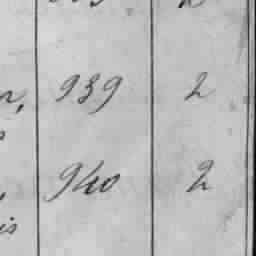 939 2
940 2
is